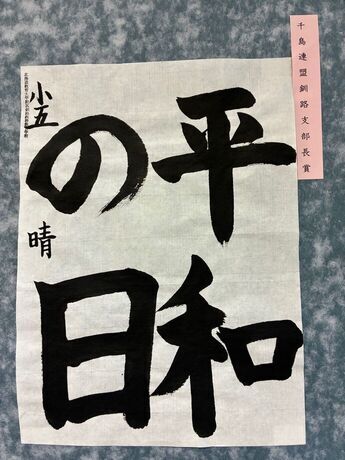 千島連盟釧路支部長賞
平和
の日
小五
晴